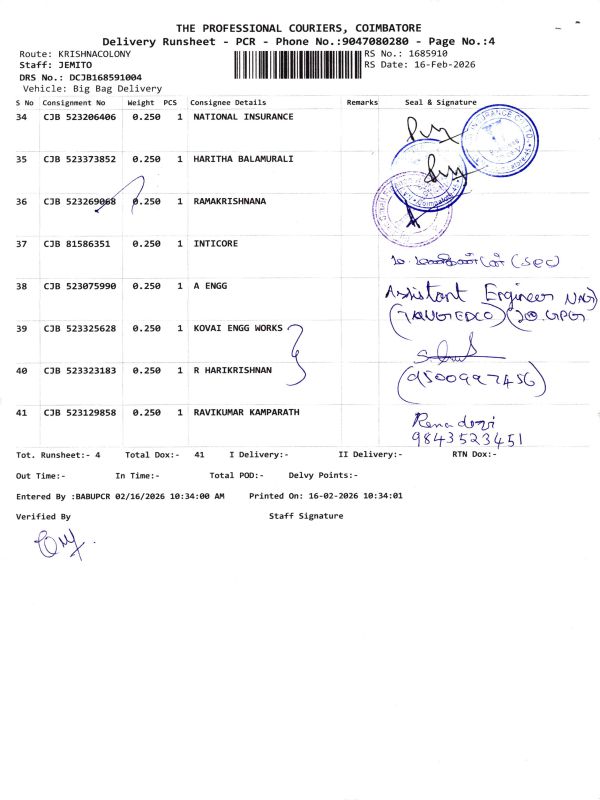 THE PROFESSIONAL COURIERS, COIMBATORE
Delivery Runsheet - PCR - Phone No.:9047080280 - Page No.:4
Route: KRISHNACOLONY RS No.: 1685910
Staff: JEMITO RS Date: 16-Feb-2026
DRS No.: DCJB168591004
Vehicle: Big Bag Delivery
S No Consignment No Weight PCS Consignee Details Remarks Seal & Signature
34 CJB 523206406 0.250 1 NATIONAL INSURANCE
35 CJB 523373852 0.250 1 HARITHA BALAMURALI
36 CJB 523269068 0.250 1 RAMAKRISHNANA
37 CJB 81586351 0.250 1 INTICORE
(Sec)
38 CJB 523075990 0.250 1 A ENGG
Assistant Engineer
(TANGEDCO)
39 CJB 523325628 0.250 1 KOVAI ENGG WORKS
40 CJB 523323183 0.250 1 R HARIKRISHNAN
(9500997456)
41 CJB 523129858 0.250 1 RAVIKUMAR KAMPARATH
9843523451
Tot. Runsheet:- 4 Total Dox:- 41 I Delivery:- II Delivery:- RTN Dox:-
Out Time:- In Time:- Total POD:- Delvy Points:-
Entered By :BABUPCR 02/16/2026 10:34:00 AM Printed On: 16-02-2026 10:34:01
Verified By Staff Signature